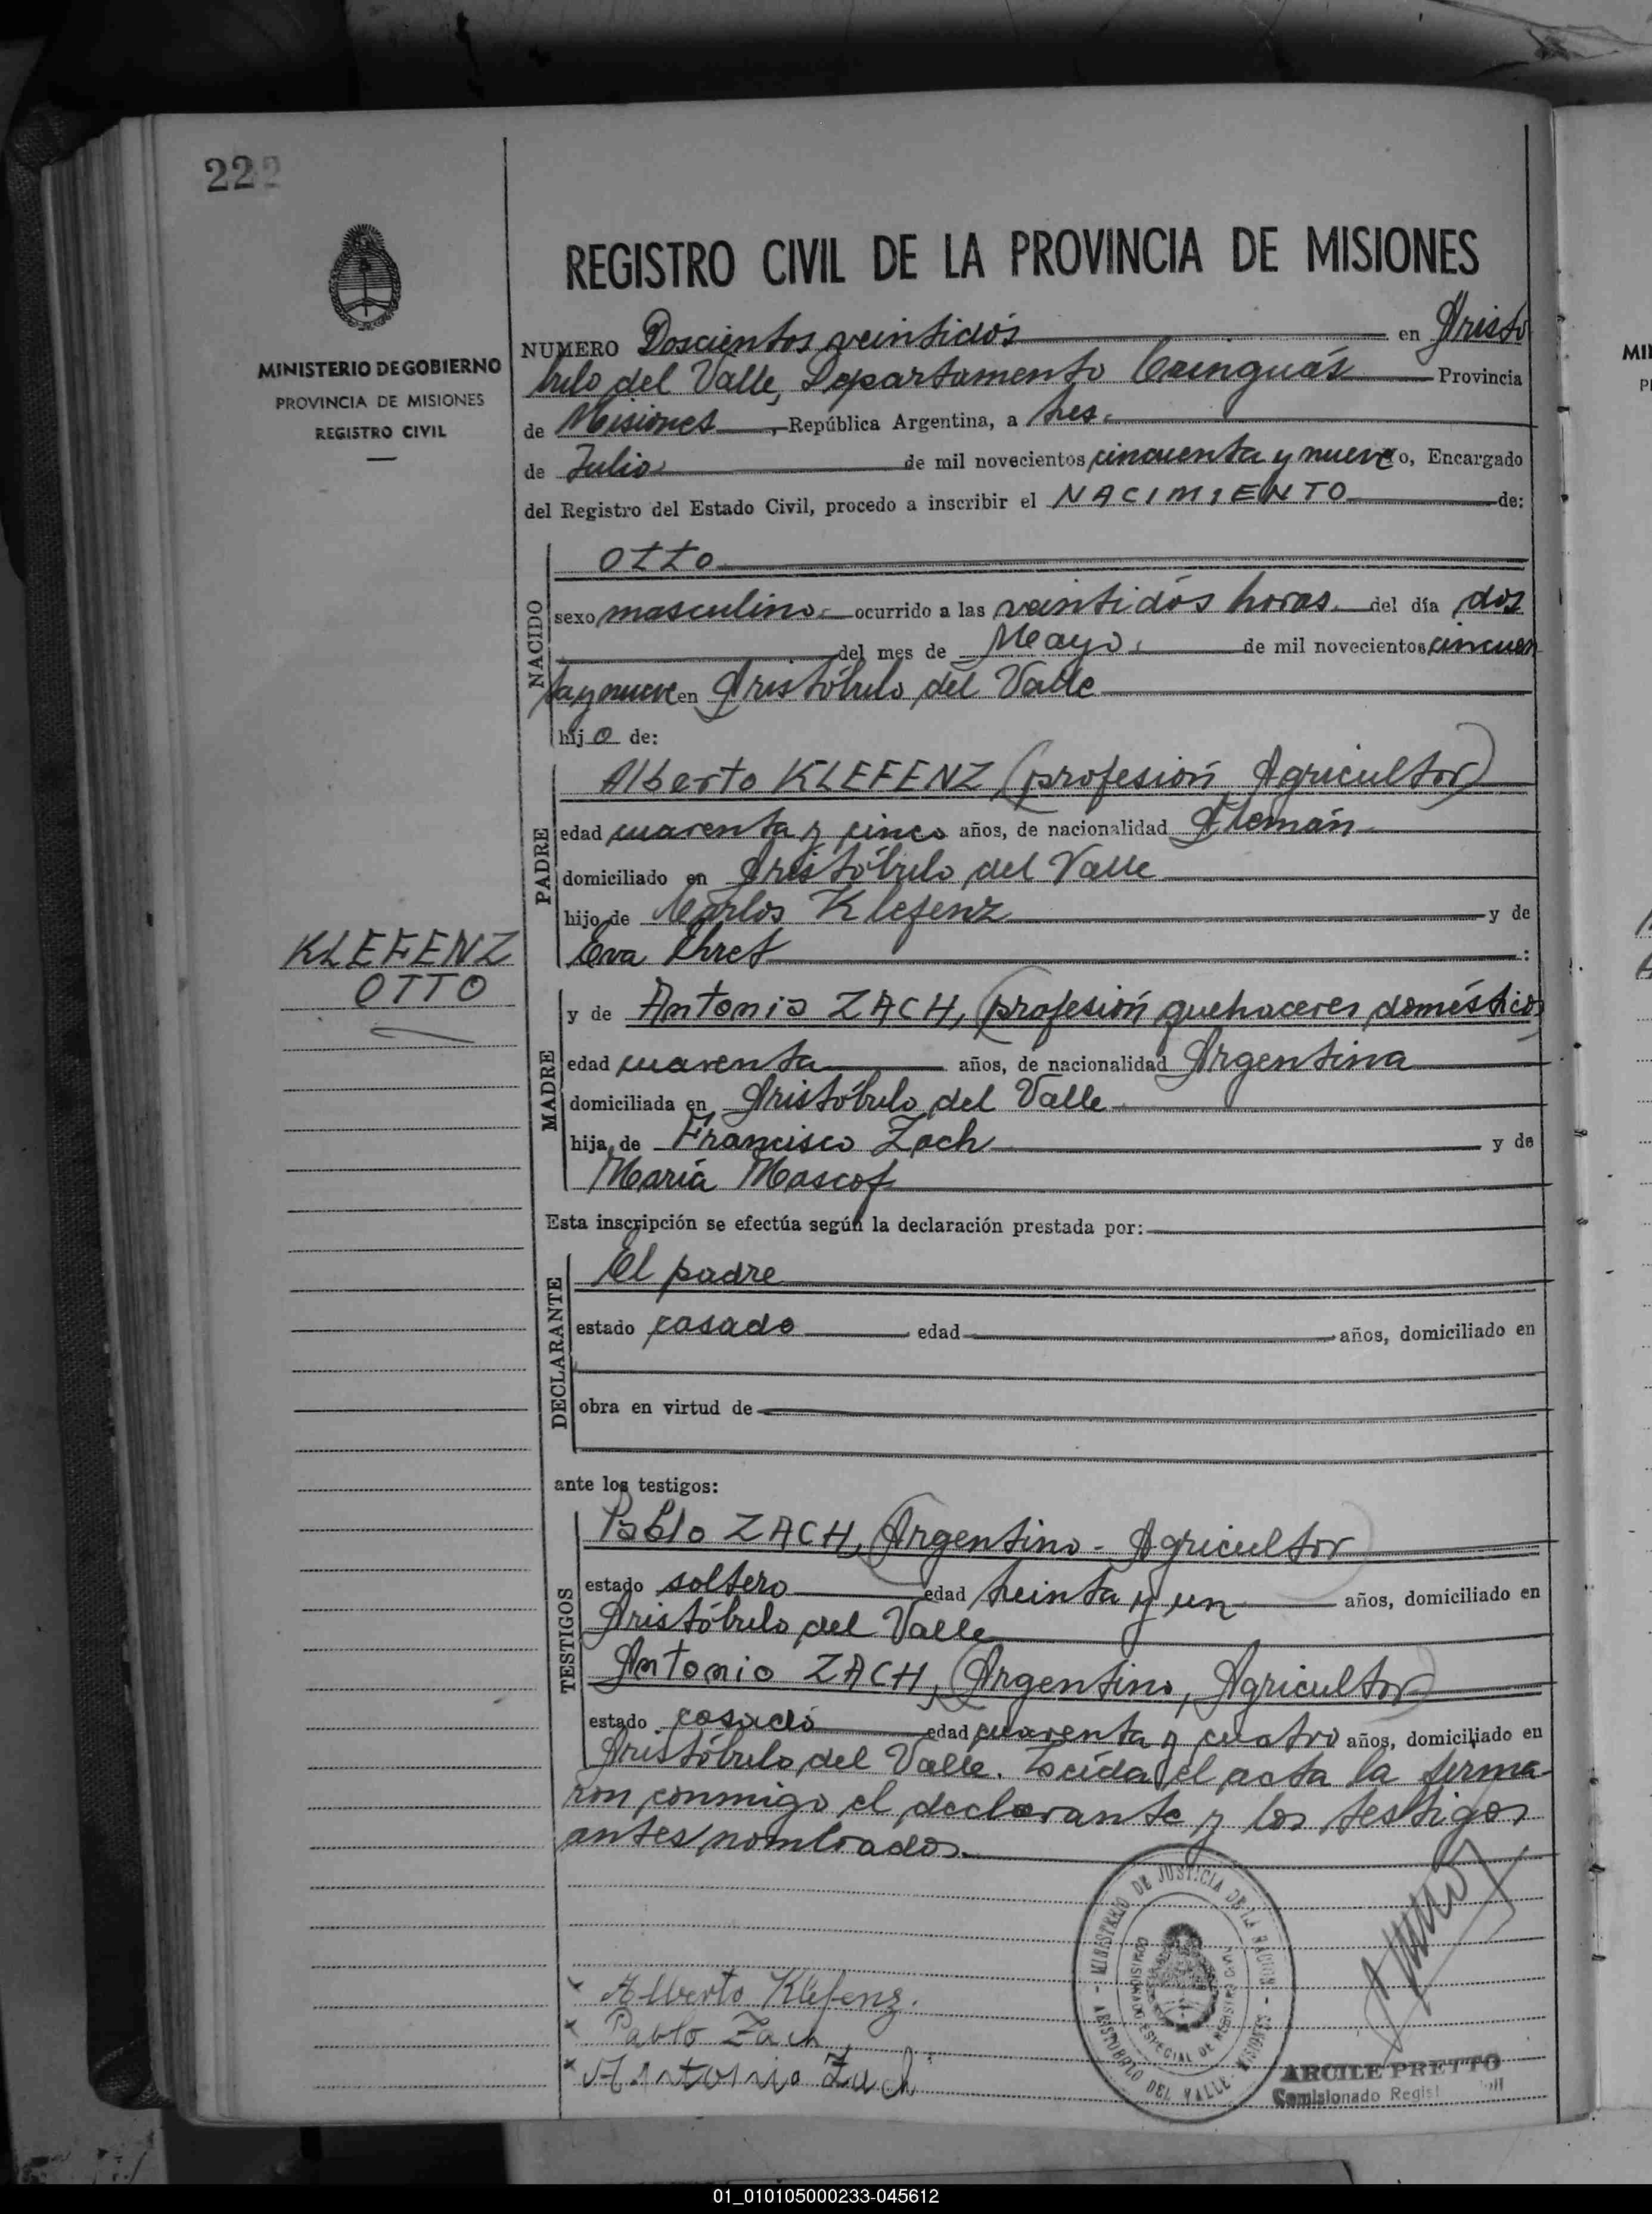 222
MINISTERIO DE GOBIERNO
PROVINCIA DE MISIONES
REGISTRO CIVIL
REGISTRO CIVIL DE LA PROVINCIA DE MISIONES
NUMERO Doscientos veintidós en Aristó
bulo del Valle, Departamento Cainguás Provincia
de Misiones, República Argentina, a tres
de Julio de mil novecientos cincuenta y nueve o, Encargado
del Registro del Estado Civil, procedo a inscribir el NACIMIENTO de:
NACIDO
OTTO
sexo masculino ocurrido a las veintidós horas del día dos
del mes de Mayo de mil novecientos cincuen
ta y nueve en Aristóbulo del Valle
hijo de:
PADRE
Alberto KLEFENZ (profesión Agricultor)
edad cuarenta y cinco años, de nacionalidad Alemán
domiciliado en Aristóbulo del Valle
hijo de Carlos Klefenz y de
Eva Ehret :
KLEFENZ
OTTO
MADRE
y de Antonia ZACH, (profesión quehaceres domésticos)
edad cuarenta años, de nacionalidad Argentina
domiciliada en Aristóbulo del Valle
hija de Francisco Zach y de
María Mascof
Esta inscripción se efectúa según la declaración prestada por:
DECLARANTE
El padre
estado casado edad años, domiciliado en
obra en virtud de
ante los testigos:
TESTIGOS
Pablo ZACH, (Argentino - Agricultor)
estado soltero edad treinta y un años, domiciliado en
Aristóbulo del Valle
Antonio ZACH, (Argentino, Agricultor)
estado casado edad cuarenta y cuatro años, domiciliado en
Aristóbulo del Valle. Leída el acta la firma-
ron conmigo el declarante y los testigos
antes nombrados.
MINISTERIO DE JUSTICIA DE LA NACION
COMISIONADO ESPECIAL DE REGISTRO CIVIL
ARISTOBULO DEL VALLE - MISIONES
x Alberto Klefenz.
x Pablo Zach
x Antonio Zach
ARCILE PRETTO
Comisionado
01_010105000233-045612